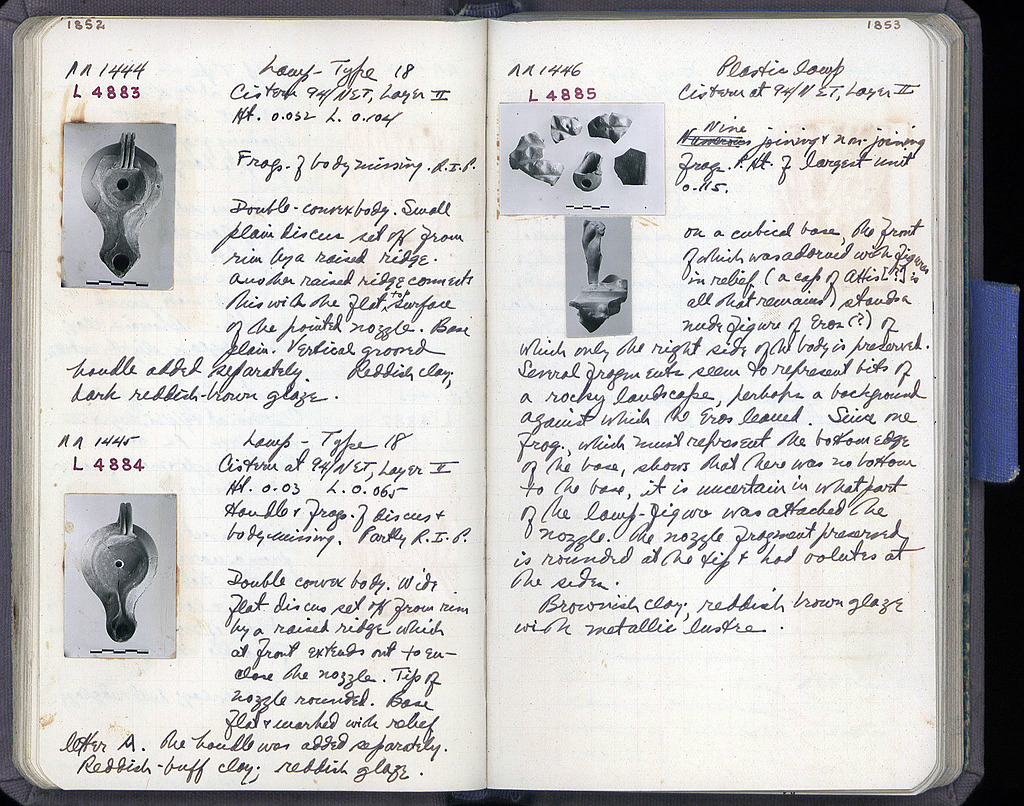 1852
AA 1444 Lamp - Type 18
L 4883 Cistern 94/NET, Layer II
Ht. 0.032 L. 0.104
Frags. of body missing. R.I.P.
Double-convex body. Small
plain discus set off from
rim by a raised ridge.
Another raised ridge connects
this with the flat top surface
of the pointed nozzle. Base
plain. Vertical grooved
handle added separately. Reddish clay,
dark reddish-brown glaze.
AA 1445 Lamp - Type 18
L 4884 Cistern at 94/NET, Layer II
Ht. 0.03 L. 0.065
Handle & frags. of discus &
body missing. Partly R.I.P.
Double convex body. Wide
flat discus set off from rim
by a raised ridge which
at front extends out to en-
close the nozzle. Tip of
nozzle rounded. Base
flat & marked with relief
letter A. The handle was added separately.
Reddish-buff clay; reddish glaze.
1853
AA 1446 Plastic lamp
L 4885 Cistern at 94/NET, Layer II
Nine
Numerous joining & non-joining
frags. P.Ht. of largest unit
0.115.
On a cubical base, the front
of which was adorned with figures
in relief, (a cap of Attis [?] is
all that remains) stands a
nude figure of Eros (?) of
which only the right side of the body is preserved.
Several fragments seem to represent bits of
a rocky landscape, perhaps a background
against which the Eros leaned. Since one
frag., which must represent the bottom edge
of the base, shows that there was no bottom
to the base, it is uncertain in what part
of the lamp-figure was attached the
nozzle. The nozzle fragment preserved
is rounded at the tip & had volutes at
the sides.
Brownish clay, reddish brown glaze
with metallic lustre.